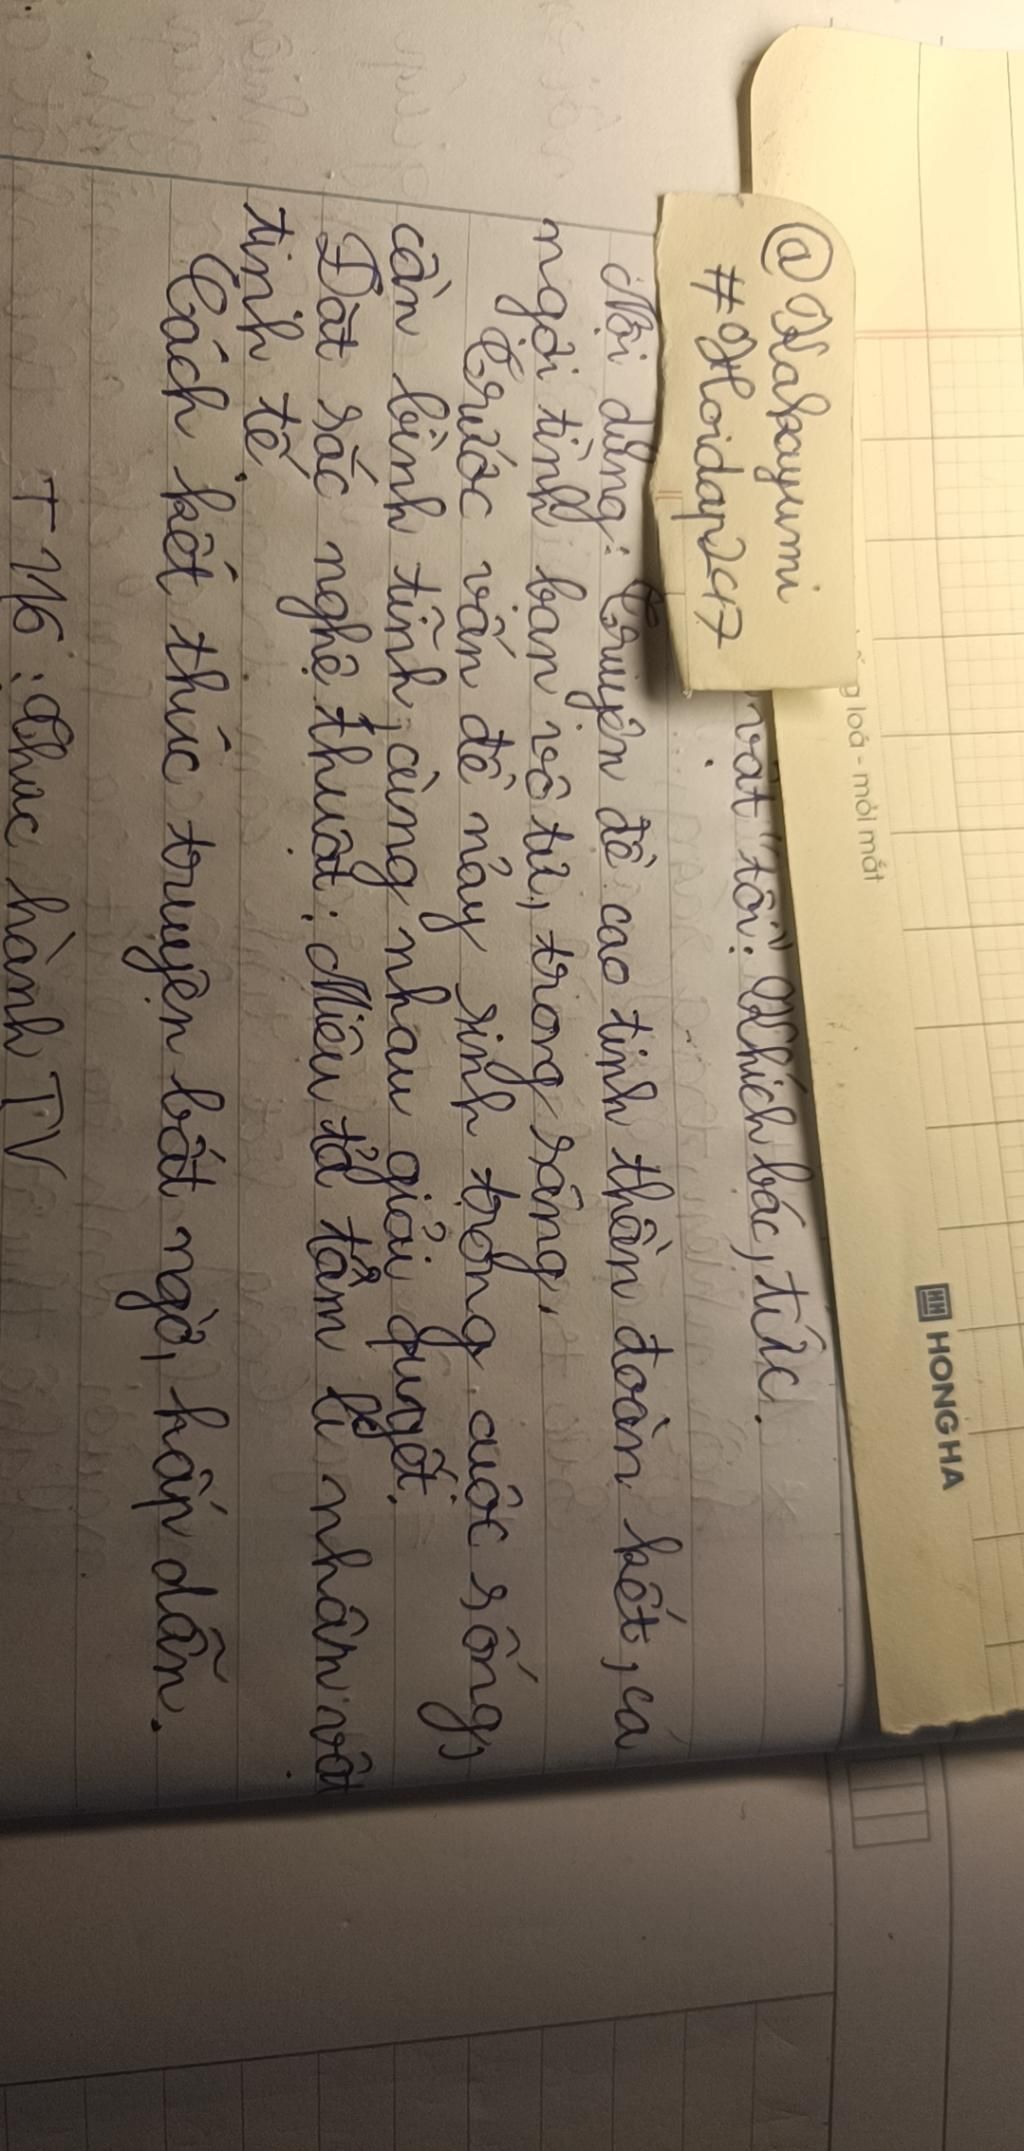 HONG HA
loá - mỏi mắt
@Nakayumi
#Hoidap247
vật "tôi": Khích bác, tức.
Nội dung: Truyện đề cao tinh thần đoàn kết, ca
ngợi tình bạn vô tư, trong sáng.
Trước vấn đề nảy sinh trong cuộc sống,
cần bình tĩnh, cùng nhau giải quyết.
Đặt sắc nghệ thuật: Miêu tả tâm lí nhân vật
tinh tế.
Cách kết thúc truyện bất ngờ, hấp dẫn.
T 116: Thực hành TV